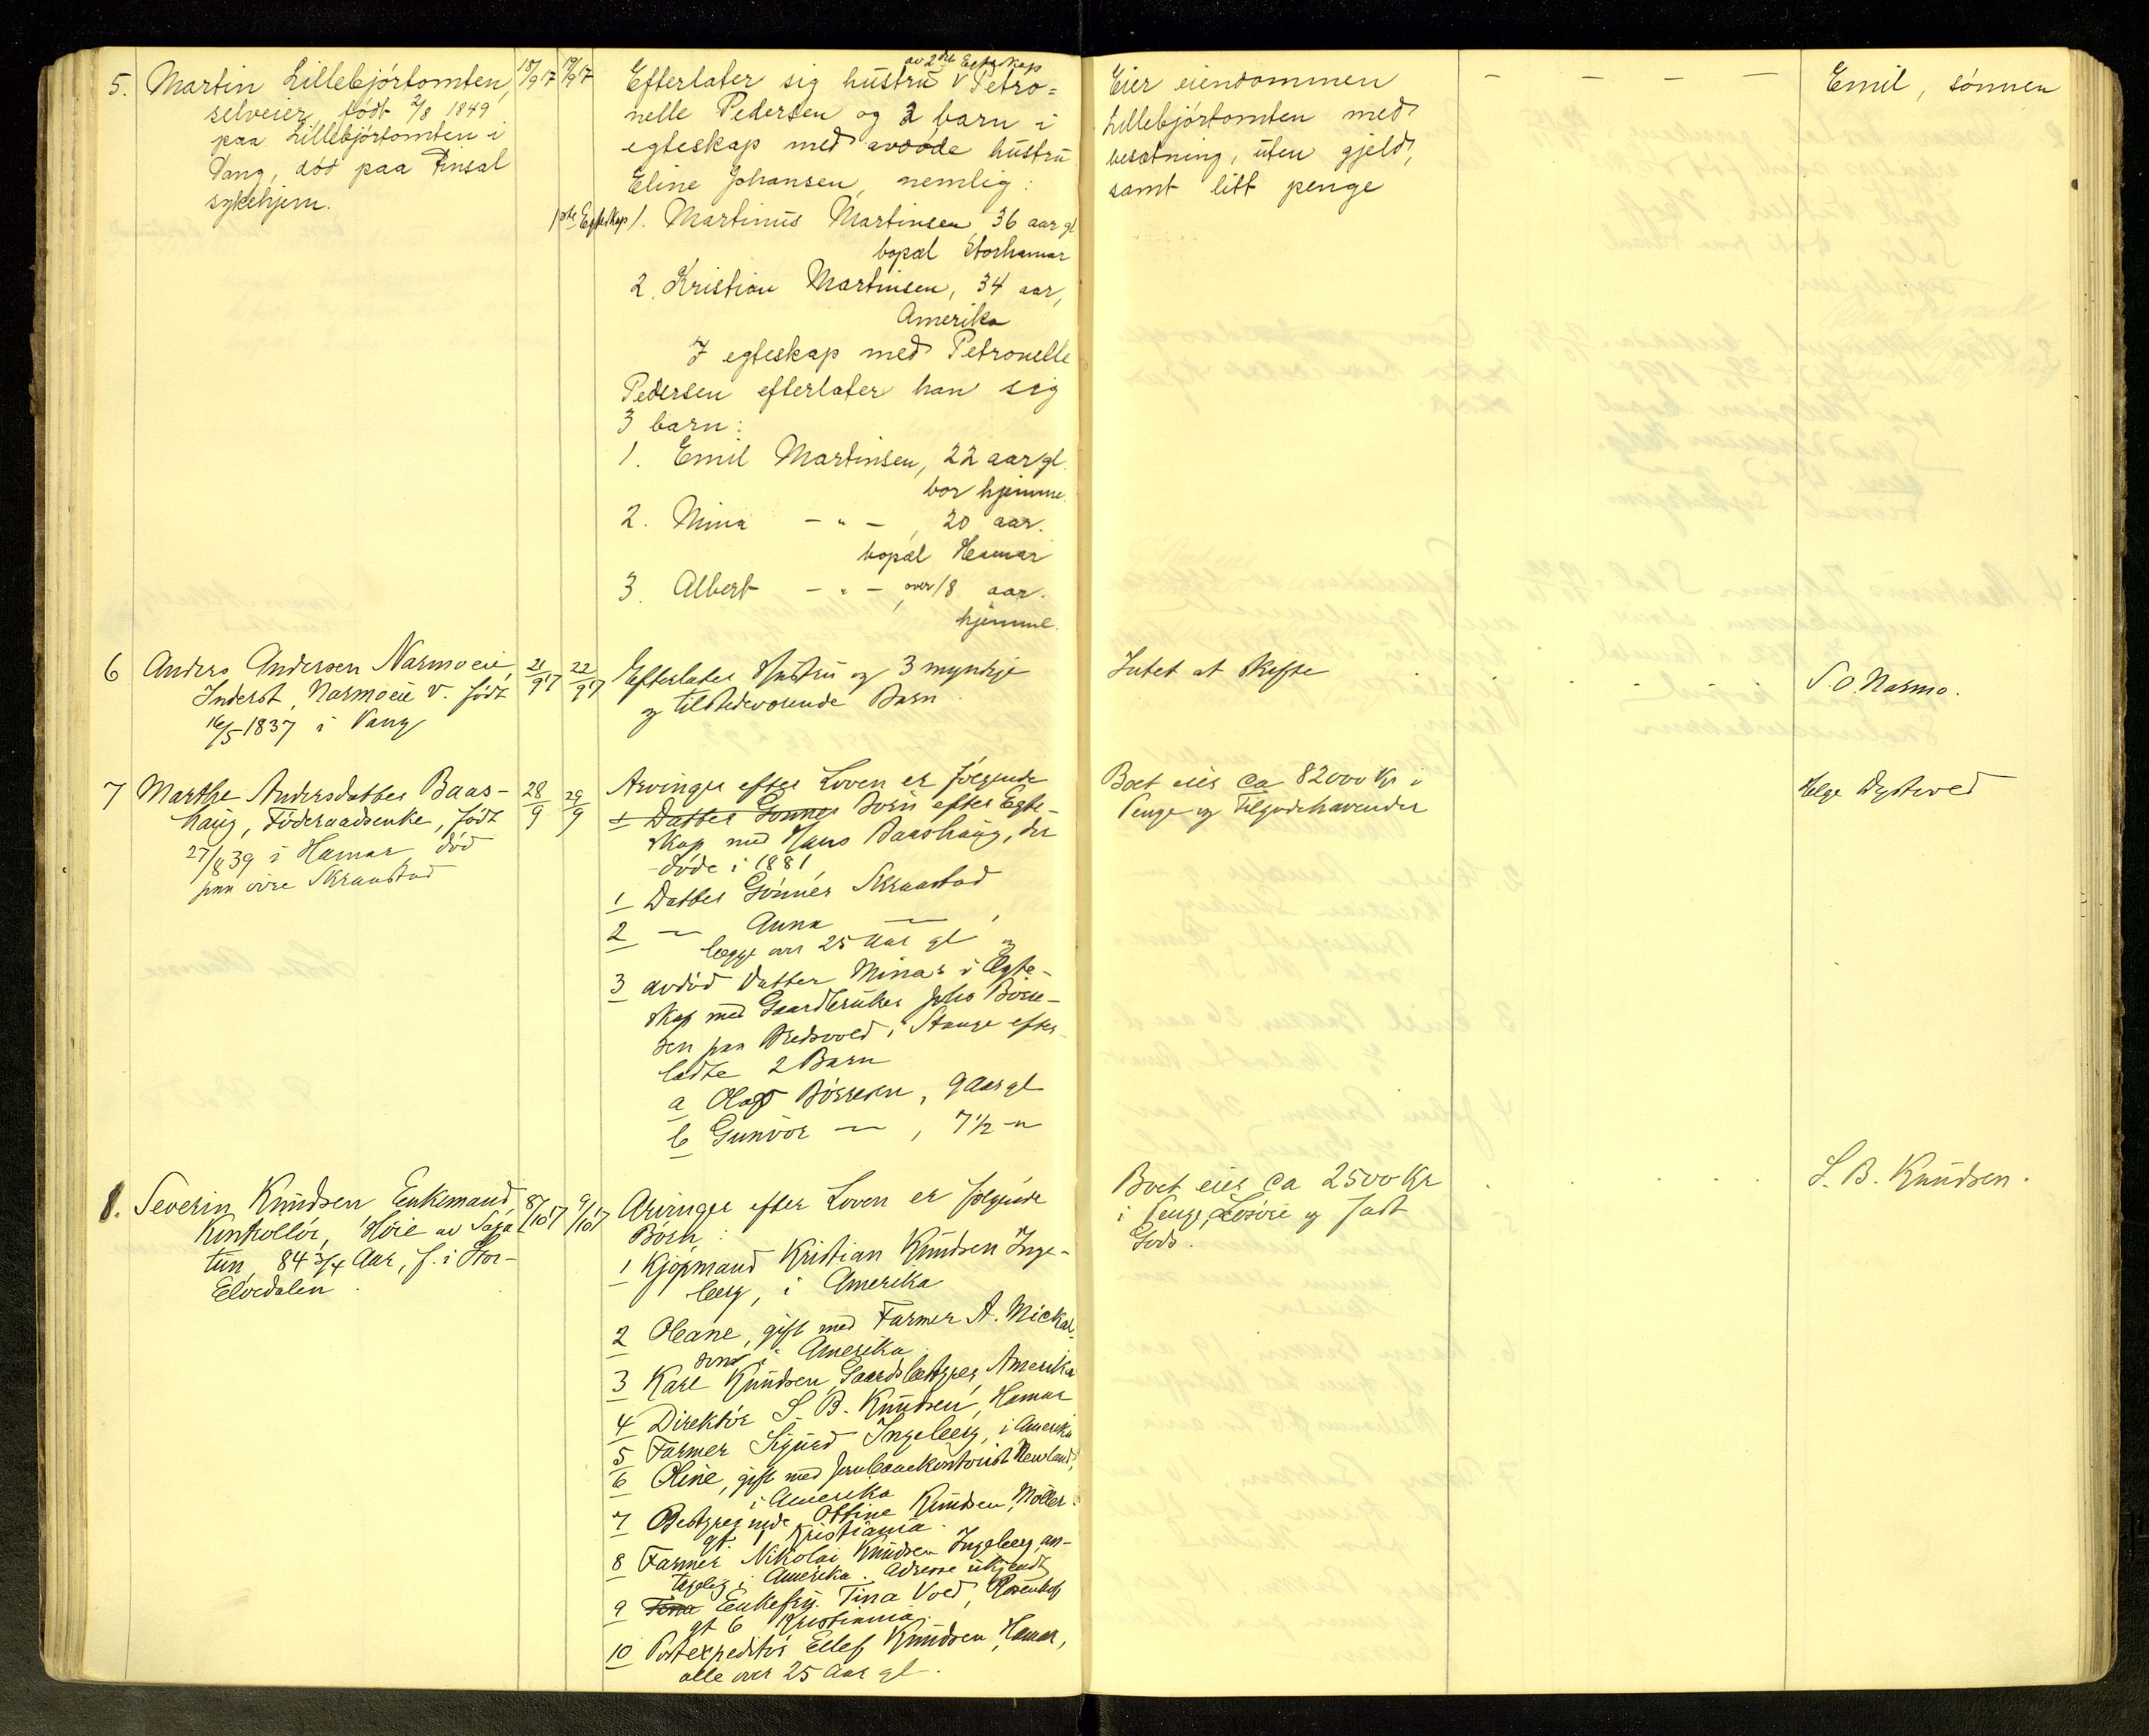 5. Martin Lillebjørtomten, 18/9 17 19/9 17
selveier, født 2/8 1849
paa Lillebjørtomten i
Vang, død paa Finsal
sykehjem.
av 2det Egteskap
Efterlater sig hustru V Petro=
nelle Pedersen og 2 barn i
egteskap med avdøde hustru
Eline Johansen, nemlig:
1ste Egteskap 1. Martinus Martinsen, 36 aar gl
bopæl Storhamar
2. Kristian Martinsen, 34 aar,
Amerika
I egteskap med Petronelle
Pedersen efterlater han sig
3 barn:
1. Emil Martinsen, 22 aar gl.
bor hjemme.
2. Mina — " — , 20 aar.
bopæl Hamar
3. Albert — " — , over 18 aar.
hjemme.
Eier eiendommen
Lillebjørtomten med
besætning, uten gjeld,
samt litt penge
— — — —
Emil, sønnen
6 Anders Andersen Narmoeie, 21/9 17 22/9 17
Inderst, Narmoeie v. født
16/5 1837 i Vang
Efterlater Hustru og 3 myndige
og tilstedeværende Barn.
Intet at skifte
S. O. Narmo.
7 Marthe Andersdatter Baas- 28/9 29/9
haug, Føderaadsenke, født
27/8 39 i Hamar, død
paa øvre Skraastad
Arvinger efter Loven er følgende
1 Datter Gønner Børn efter Egte-
skap med Hans Baashaug, der
døde i 1881
1 Datter Gønner Skraastad
2 — Anna — ,
begge over 25 Aar gl og
3 avdød Datter Minas i Egte-
skap med Gaardbruker Johs Børre-
sen paa i Stange efter-
ladte 2 Barn
a Olaf Børresen, 9 Aar gl
b Gunvor — , 7 1/2 — "
Boet eier ca 82000 Kr i
Penge og Tilgodehavender
Helge Dystvold
8. Severin Knudsen Enkemand, 8/10 17 9/10 17
Kontrollør, Høie av Saga
tun, 84 3/4 Aar, f. i Stor-
Elvedalen.
Arvinger efter Loven er følgende
Børn:
1 Kjøpmand Kristian Knudsen Inge-
berg, i Amerika
2 Oleane, gift med Farmer A. Mickal-
sen i Amerika.
3 Karl Knudsen, Gaardsbestyrer, Amerika
4 Direktør S. B. Knudsen, Hamar
5 Farmer Sigurd Ingeberg, i Amerika
6 Oline, gift med Jernbanekontorist Newland,
i Amerika
7 Bestyrerinde Ottine Knudsen, Møller
gt. 1 Kristiania.
8 Farmer Nikolai Knudsen Ingeberg, an-
tagelig i Amerika. Adresse ukjendt
9 Tina Enkefru Tina Vold, Rosenhof
gt 6 Kristiania.
10 Postexpeditør Ellef Knudsen, Hamar,
alle over 25 Aar gl.
Boet eier ca 2500 Kr
i Penge, Løsøre og fast
Gods.
S. B. Knudsen.